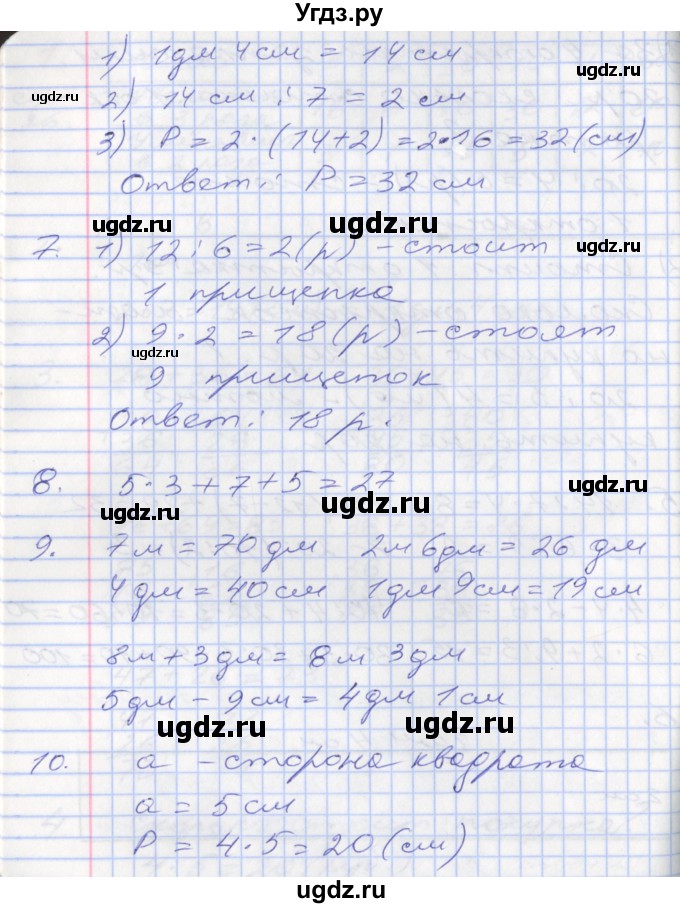 Угдз.ру
1) 1дм 4см = 14 см
ugdz.ru
ugdz.ru
2) 14 см : 7 = 2 см
3) P = 2 · (14+2) = 2·16 = 32 (см)
ugdz.ru
Ответ: P = 32 см
ugdz.ru
ugdz.ru
ugdz.ru
7. 1) 12 : 6 = 2 (р) – стоит
1 прищепка
2) 9 · 2 = 18 (р) – стоят
ugdz.ru
9 прищеток
Ответ: 18 р.
8. 5·3+7+5=27
ugdz.ru
ugdz.ru
9. 7м = 70 дм 2м 6дм = 26 дм
4 дм = 40 см 1дм 9см = 19 см
8м+3дм = 8м 3дм
5дм – 9см = 4дм 1см
ugdz.ru
ugdz.ru
10. a – сторона квадрата
a = 5 см
P = 4·5 = 20 (см)
ugdz.ru